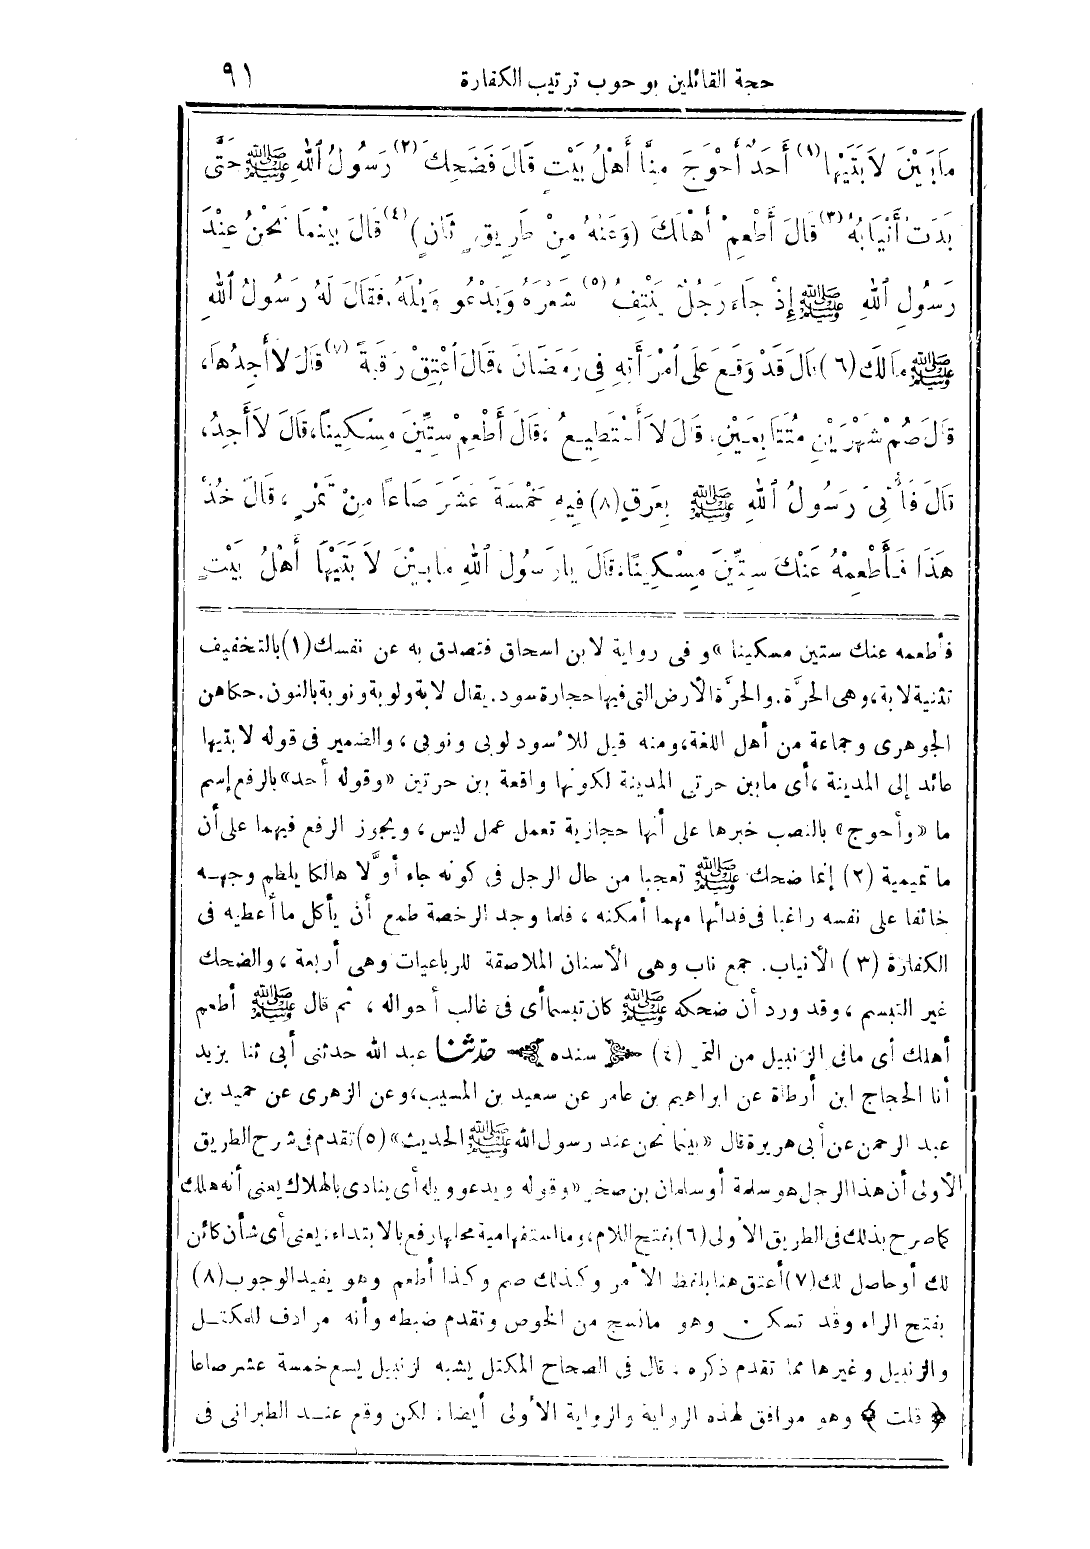 حجة القائلين بوجوب ترتيب الكفارة ٩١
مَا بَيْنَ لَابَتَيْهَا (١) أَحَدٌ أَحْوَجَ مِنَّا أَهْلُ بَيْتٍ قَالَ فَضَحِكَ (٢) رَسُولُ اللهِ ﷺ حَتَّى
بَدَتْ أَنْيَابُهُ (٣) قَالَ أَطْعِمْ أَهْلَكَ (وَعَنْهُ مِنْ طَرِيقٍ ثَانٍ) (٤) قَالَ بَيْنَمَا نَحْنُ عِنْدَ
رَسُولِ اللهِ ﷺ إِذْ جَاءَ رَجُلٌ يَنْتِفُ (٥) شَعْرَهُ وَيَدْعُو وَيْلَهُ، فَقَالَ لَهُ رَسُولُ اللهِ
ﷺ مَالَكَ (٦) قَالَ قَدْ وَقَعَ عَلَى امْرَأَتِهِ فِي رَمَضَانَ، قَالَ أَعْتِقْ رَقَبَةً (٧) قَالَ لَا أَجِدُهَا،
قَالَ صُمْ شَهْرَيْنِ مُتَتَابِعَيْنِ، قَالَ لَا أَسْتَطِيعُ، قَالَ أَطْعِمْ سِتِّينَ مِسْكِينًا، قَالَ لَا أَجِدُ،
قَالَ فَأُتِيَ رَسُولُ اللهِ ﷺ بِعَرَقٍ (٨) فِيهِ خَمْسَةَ عَشَرَ صَاعًا مِنْ تَمْرٍ، قَالَ خُذْ
هَذَا فَأَطْعِمْهُ عَنْكَ سِتِّينَ مِسْكِينًا، قَالَ يَا رَسُولَ اللهِ مَا بَيْنَ لَابَتَيْهَا أَهْلُ بَيْتٍ
فأطعمه عنك ستين مسكينا» وفى رواية لابن اسحاق فتصدق به عن نفسك (١) بالتخفيف
تثنية لابة، وهى الحرَّة. والحرَّة الأرض التى فيها حجارة سود. يقال لابة ولوبة ونوبة بالنون. حكاهن
الجوهرى وجماعة من أهل اللغة، ومنه قيل للأسود لوبى ونوبى، والضمير فى قوله لابتيها
عائد إلى المدينة، أى ما بين حرتى المدينة لكونها واقعة بين حرتين «وقوله أحد» بالرفع إسم
ما «وأحوج» بالنصب خبرها على أنها حجازية تعمل عمل ليس، ويجوز الرفع فيهما على أن
ما تميمية (٢) إنما ضحك ﷺ تعجبا من حال الرجل فى كونه جاء أوَّلا هالكا يلطم وجهه
خائفا على نفسه راغبا فى فدائها مهما أمكنه، فلما وجد الرخصة طمع أن يأكل ما أعطيه فى
الكفارة (٣) الأنياب. جمع ناب وهى الأسنان الملاصقة للرباعيات وهى أربعة، والضحك
غير التبسم، وقد ورد أن ضحكه ﷺ كان تبسما أى فى غالب أحواله، ثم قال ﷺ أطعم
أهلك أى ما فى الزنبيل من التمر (٤) ﴿ سنده ﴾ حدّثنا عبد الله حدثنى أبى ثنا يزيد
أنا الحجاج ابن أرطاة عن ابراهيم بن عامر عن سعيد بن المسيب، وعن الزهرى عن حميد بن
عبد الرحمن عن أبى هريرة قال «بينما نحن عند رسول الله ﷺ الحديث» (٥) تقدم فى شرح الطريق
الأولى أن هذا الرجل هو سلمة أو سلمان بن صخر «وقوله ويدعو ويله أى ينادى بالهلاك يعنى أنه هلك
كما صرح بذلك فى الطريق الأولى (٦) بفتح اللام، وما استفهامية محلها رفع بالابتداء، يعنى أى شأن كائن
لك أو حاصل لك (٧) أعتق هنا بلفظ الأمر وكذلك صم وكذا أطعم وهو يفيد الوجوب (٨)
بفتح الراء وقد تسكن. وهو ما نسج من الخوص وتقدم ضبطه وأنه مرادف للمكتل
والزنبيل وغيرها مما تقدم ذكره، قال فى الصحاح المكتل يشبه الزنبيل يسع خمسة عشر صاعا
﴿ قلت ﴾ وهو موافق لهذه الرواية والرواية الأولى أيضا، لكن وقع عند الطبرانى فى